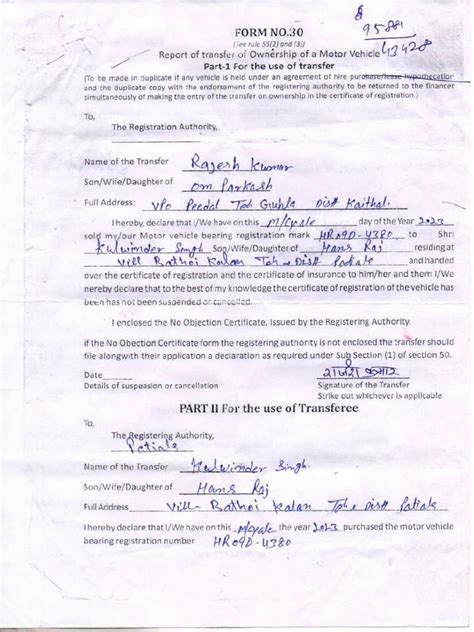 FORM NO.30
95881
43428
(See rule 55(2) and (3))
Report of transfer of Ownership of a Motor Vehicle
Part-1 For the use of transfer
(To be made in duplicate if any vehicle is held under an agreement of hire purchase/lease hypothecation
and the duplicate copy with the endorsement of the registering authority to be returned to the financer
simultaneously of making the entry of the transfer on ownership in the certificate of registration.)
To,
The Registration Authority,
Name of the Transfer Rajesh Kumar
Son/Wife/Daughter of Om Parkash
Full Address: VPO Peedal Teh Guhla Distt Kaithal.
I hereby, declare that I/We have on this M/Cycle day of the Year 2023
sold my/our Motor vehicle bearing registration mark HR09D-4380 to Shri
Kulwinder Singh Son/Wife/Daughter of Hans Raj residing at
Vill Bathoi Kalan Teh & Distt Patiala and handed
over the certificate of registration and the certificate of insurance to him/her and them I/We
hereby declare that to the best of my knowledge the certificate of registration of the vehicle has
been has not been suspended or cancelled.
I enclosed the No Objection Certificate, issued by the Registering Authority.
if the No Obection Certificate form the registering authority is not enclosed the transfer should
file alongwith their application a declaration as required under Sub Section (1) of section 50.
Date
Details of suspeasion or cancellation
Signature of the Transfer
Strike out whichever is applicable
PART II For the use of Transferee
To,
The Registering Authority,
Patiala
Name of the Transfer Kulwinder Singh.
Son/Wife/Daughter of Hans Raj
Full Address Vill- Bathoi Kalan Teh & Distt Patiala
I hereby declare that I/We have on this M/Cycle the year 2023 purchased the motor vehicle
bearing registration number HR09D-4380